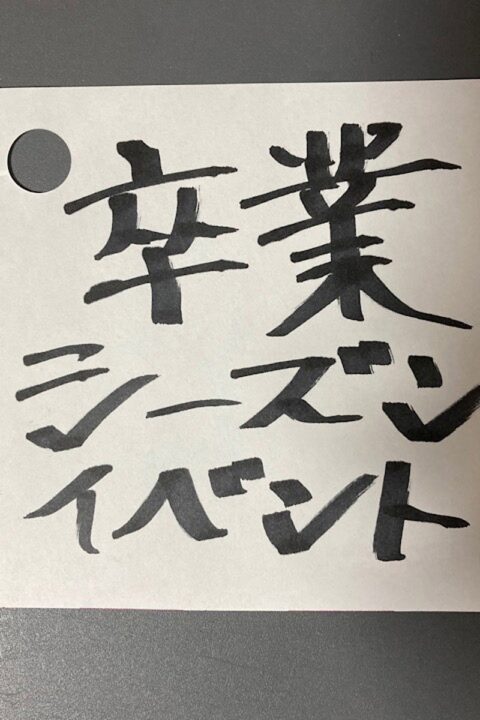 卒業
シーズン
イベント